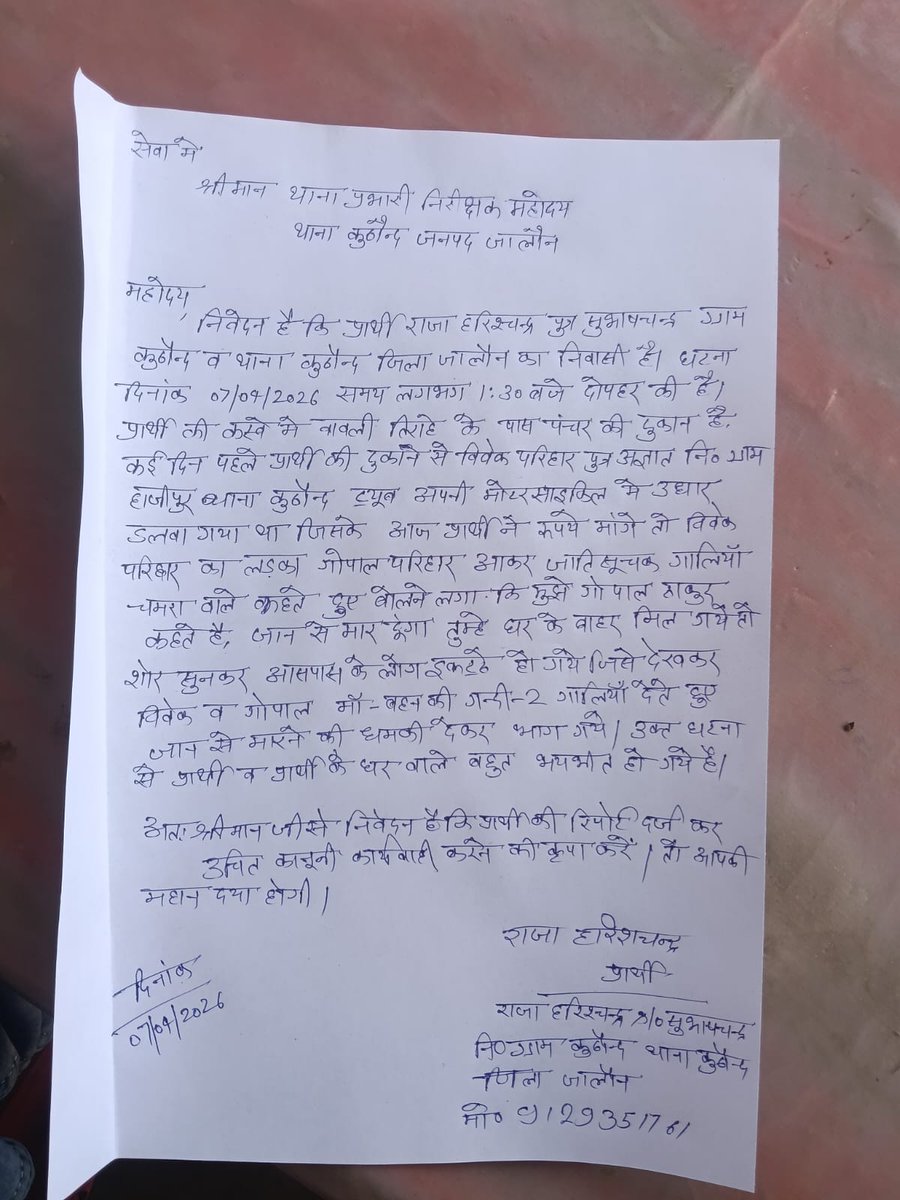 सेवा में
श्रीमान थाना प्रभारी निरीक्षक महोदय
थाना कुठौन्द जनपद जालौन
महोदय,
निवेदन है कि प्रार्थी राजा हरिश्चन्द्र पुत्र सुभाषचन्द्र ग्राम
कुठौन्द व थाना कुठौन्द जिला जालौन का निवासी है। घटना
दिनांक 07/04/2026 समय लगभग 1:30 बजे दोपहर की है।
प्रार्थी की कस्वे मे वावली तिराहे के पास पंचर की दुकान है,
कई दिन पहले प्रार्थी की दुकान से विवेक परिहार पुत्र अज्ञात नि० ग्राम
हाजीपुर थाना कुठौन्द ट्यूब अपनी मोटरसाइकिल मे उधार
डलवा गया था जिसके आज प्रार्थी ने रूपये मांगे तो विवेक
परिहार का लड़का गोपाल परिहार आकर जाति सूचक गालियाँ
चमरा वाले कहते हुए बोलने लगा कि मुझे गोपाल ठाकुर
कहते है, जान से मार दूंगा तुम्हे घर के वाहर मिल गये तो
शोर सुनकर आसपास के लोग इकट्ठे हो गये जिसे देखकर
विवेक व गोपाल माँ-बहन की गन्दी-2 गालियाँ देते हुए
जान से मारने की धमकी देकर भाग गये। उक्त घटना
से प्रार्थी व प्रार्थी के घर वाले बहुत भयभीत हो गये है।
अतः श्रीमान जी से निवेदन है कि प्रार्थी की रिपोर्ट दर्ज कर
उचित कानूनी कार्यवाही करने की कृपा करें। तो आपकी
महान दया होगी।
राजा हरिशचन्द्र
प्रार्थी
दिनांक
07/04/2026
राजा हरिश्चन्द्र S/o सुभाषचन्द्र
नि० ग्राम कुठौन्द थाना कुठौन्द
जिला जालौन
मो० 9129351761